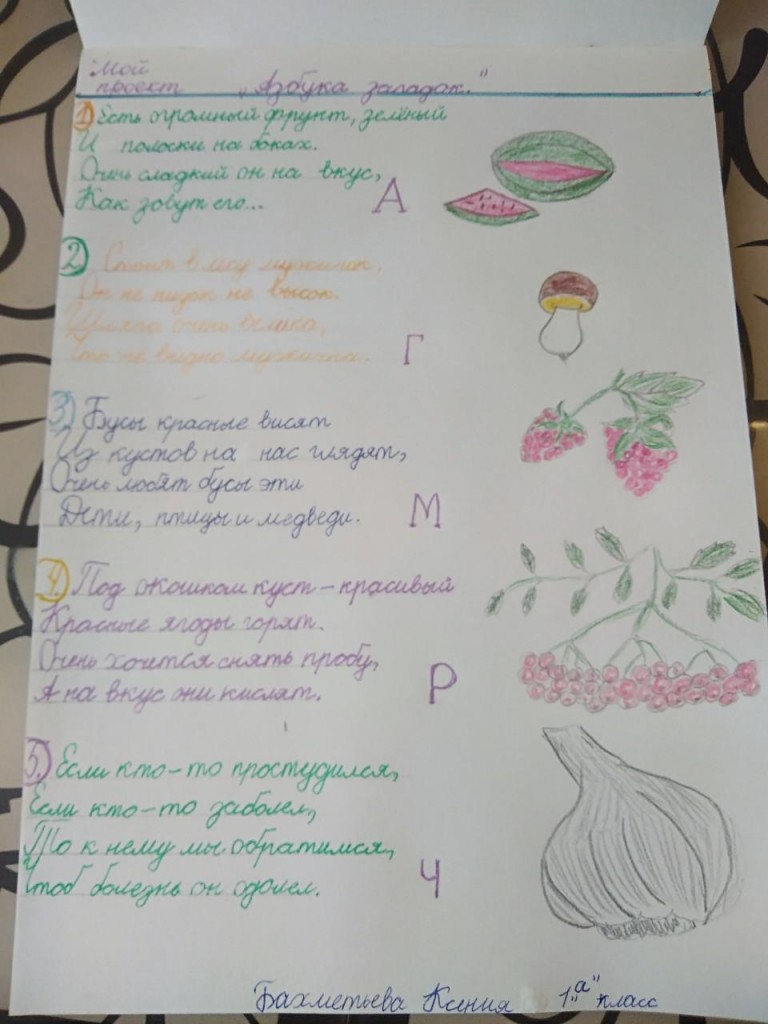 Мой
проект „Азбука загадок."
1 Есть огромный фрукт, зелёный
И полоски на боках.
Очень сладкий он на вкус,
Как зовут его... А
2 Стоит в лесу мужичок.
Он не низок не высок.
Шляпа очень велика,
Что не видно мужичка. Г
3 Бусы красные висят
Из кустов на нас глядят,
Очень любят бусы эти
Дети, птицы и медведи. М
4 Под окошком куст – красивый
Красные ягоды горят.
Очень хочется снять пробу,
А на вкус они кислят. Р
5. Если кто-то простудился,
Если кто-то заболел,
То к нему мы обратимся,
Чтоб болезнь он одолел. Ч
Бахметьева Ксения 1„а" класс